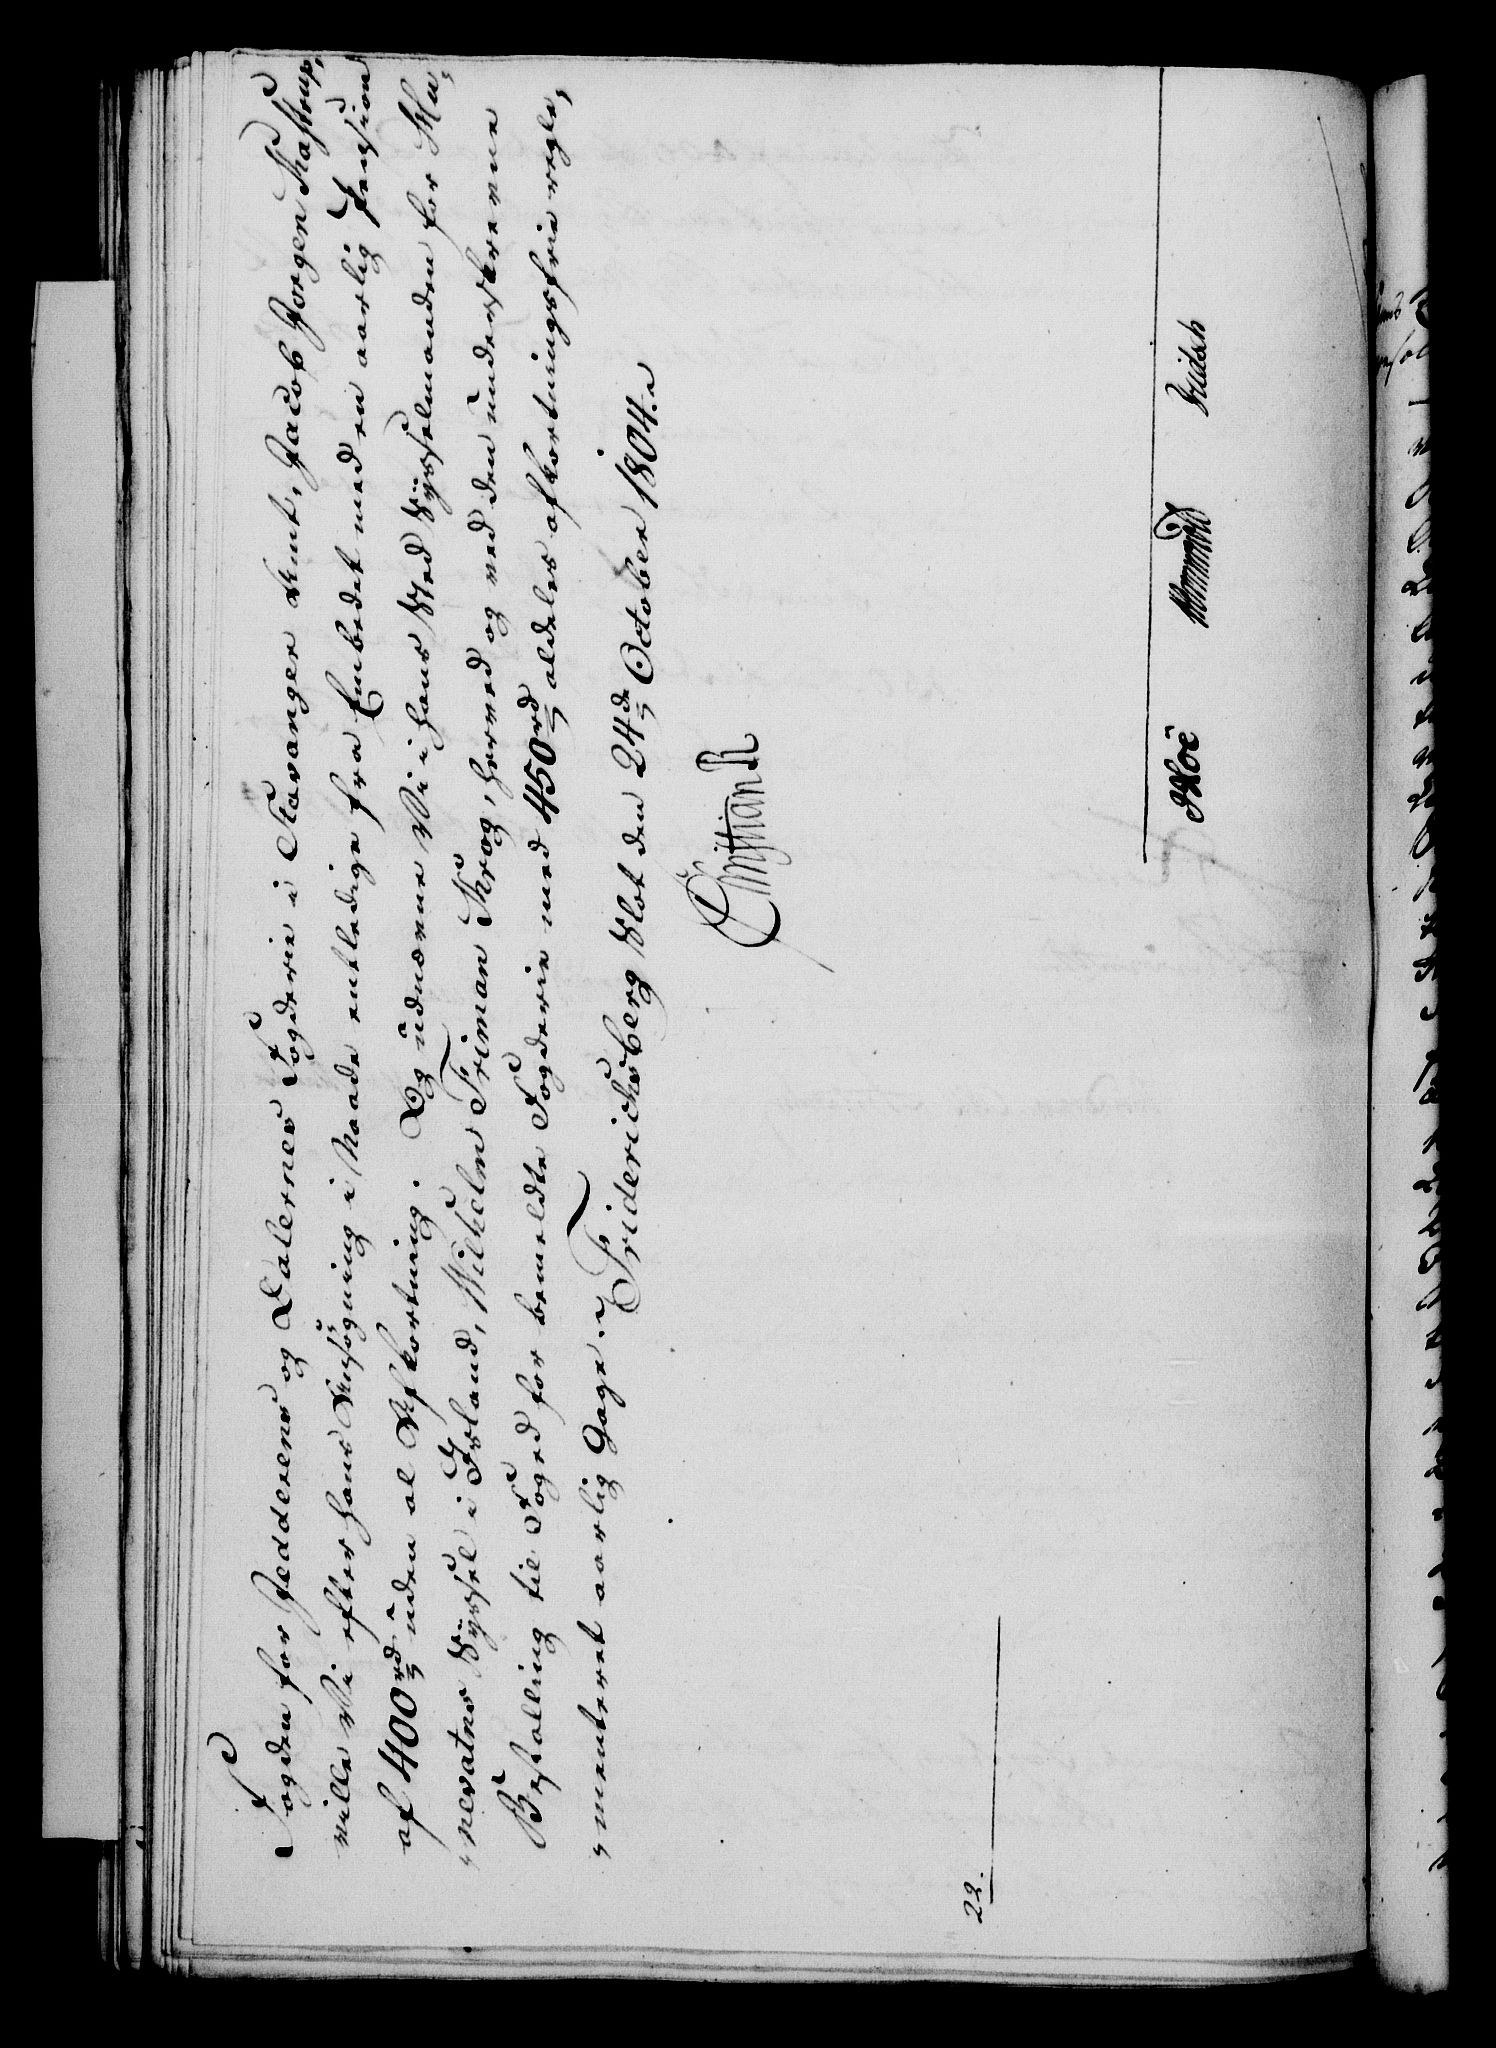 Fogden for Jedderens og Dalernes Fogderie i Stavanger Amt, Jacob Jørgen Kastrup,
ville Vi efter hans Ansøgning i Naade entledige fra Embedet med en aarlig Pension
af 400 rd uden al Afkortning. Og udnævne Vi i hans Sted Sysselmanden for Mu¬
¬nevatns Syssel i Island, Wilhelm Friman Krog, herved og ved den underskrevne
Bestalling til Foged for bemeldte Fogderie med 450 rd aldeles afkortningsfrie regle¬
¬menteret aarlig Gage. Friderichsberg Slot den 24de October 1804.
Christian R
22.
JHoë Hammond Bridsh